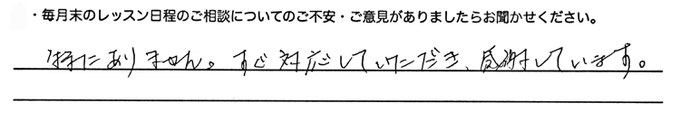 ・毎月末のレッスン日程のご相談についてのご不安・ご意見がありましたらお聞かせください。
特にありません。すぐ対応していただき、感謝しています。